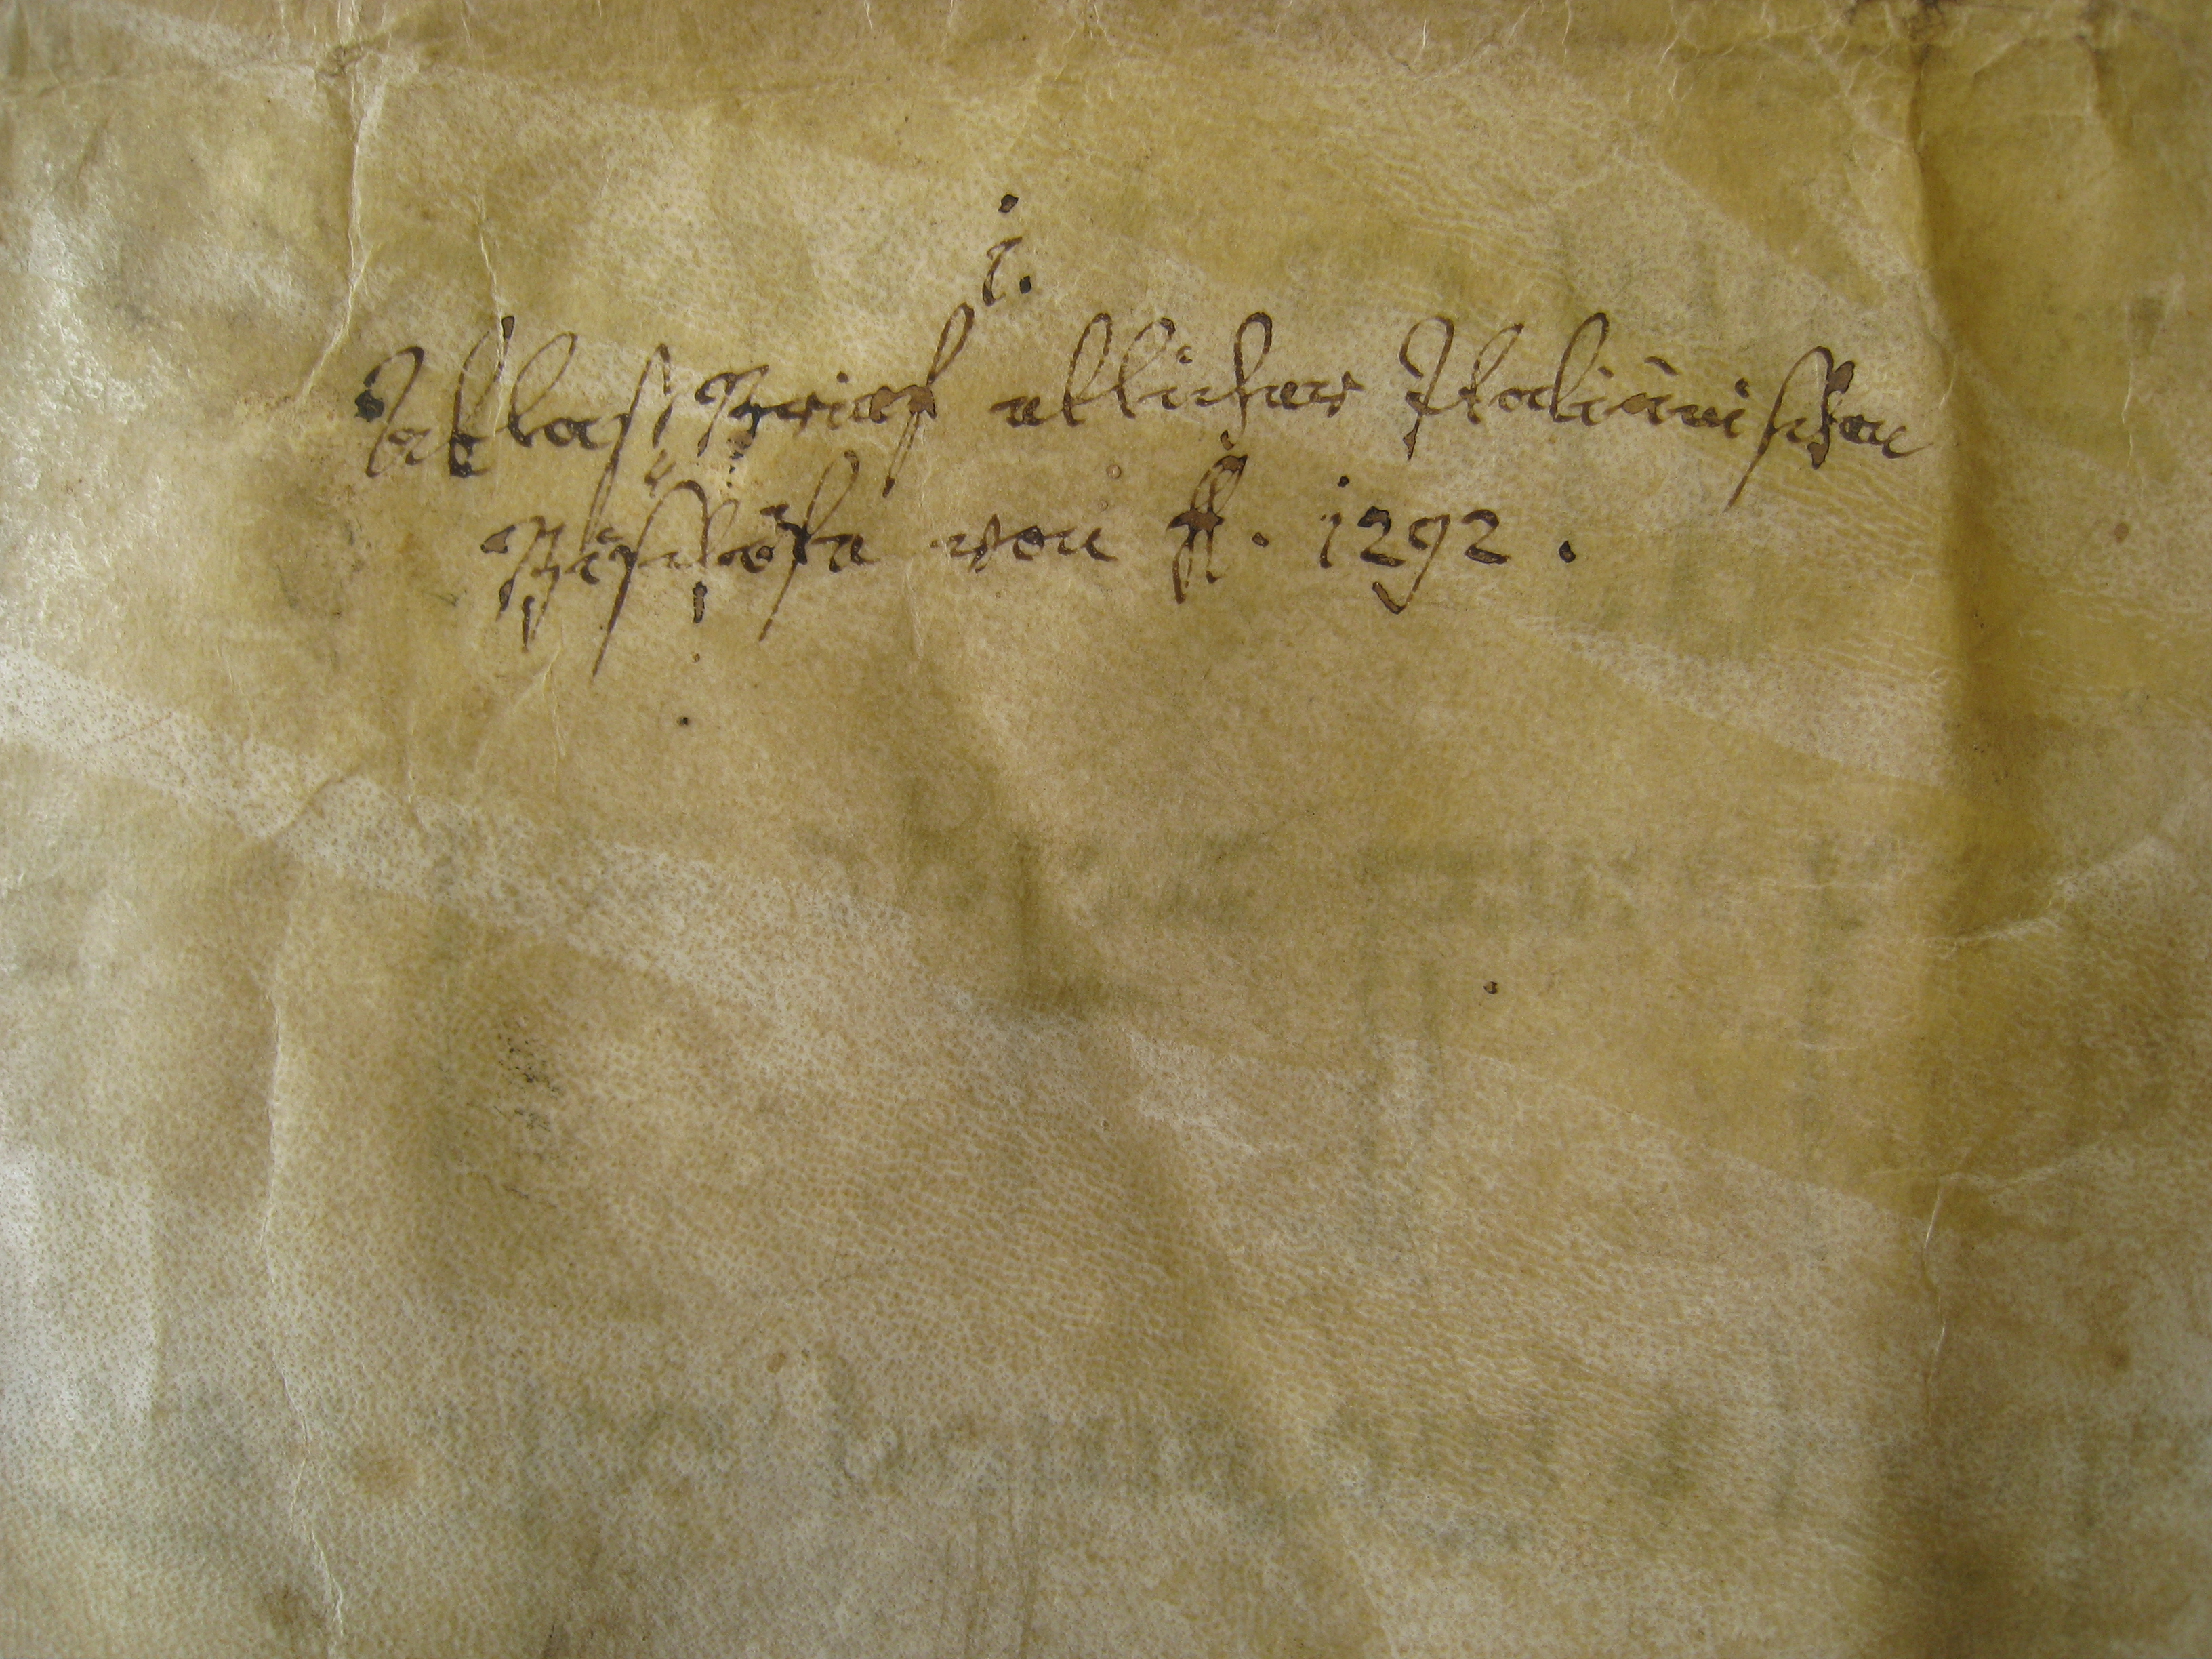 i.
Ablaß Brief etlicher Italiänischen
Bischöfe von A. 1292.